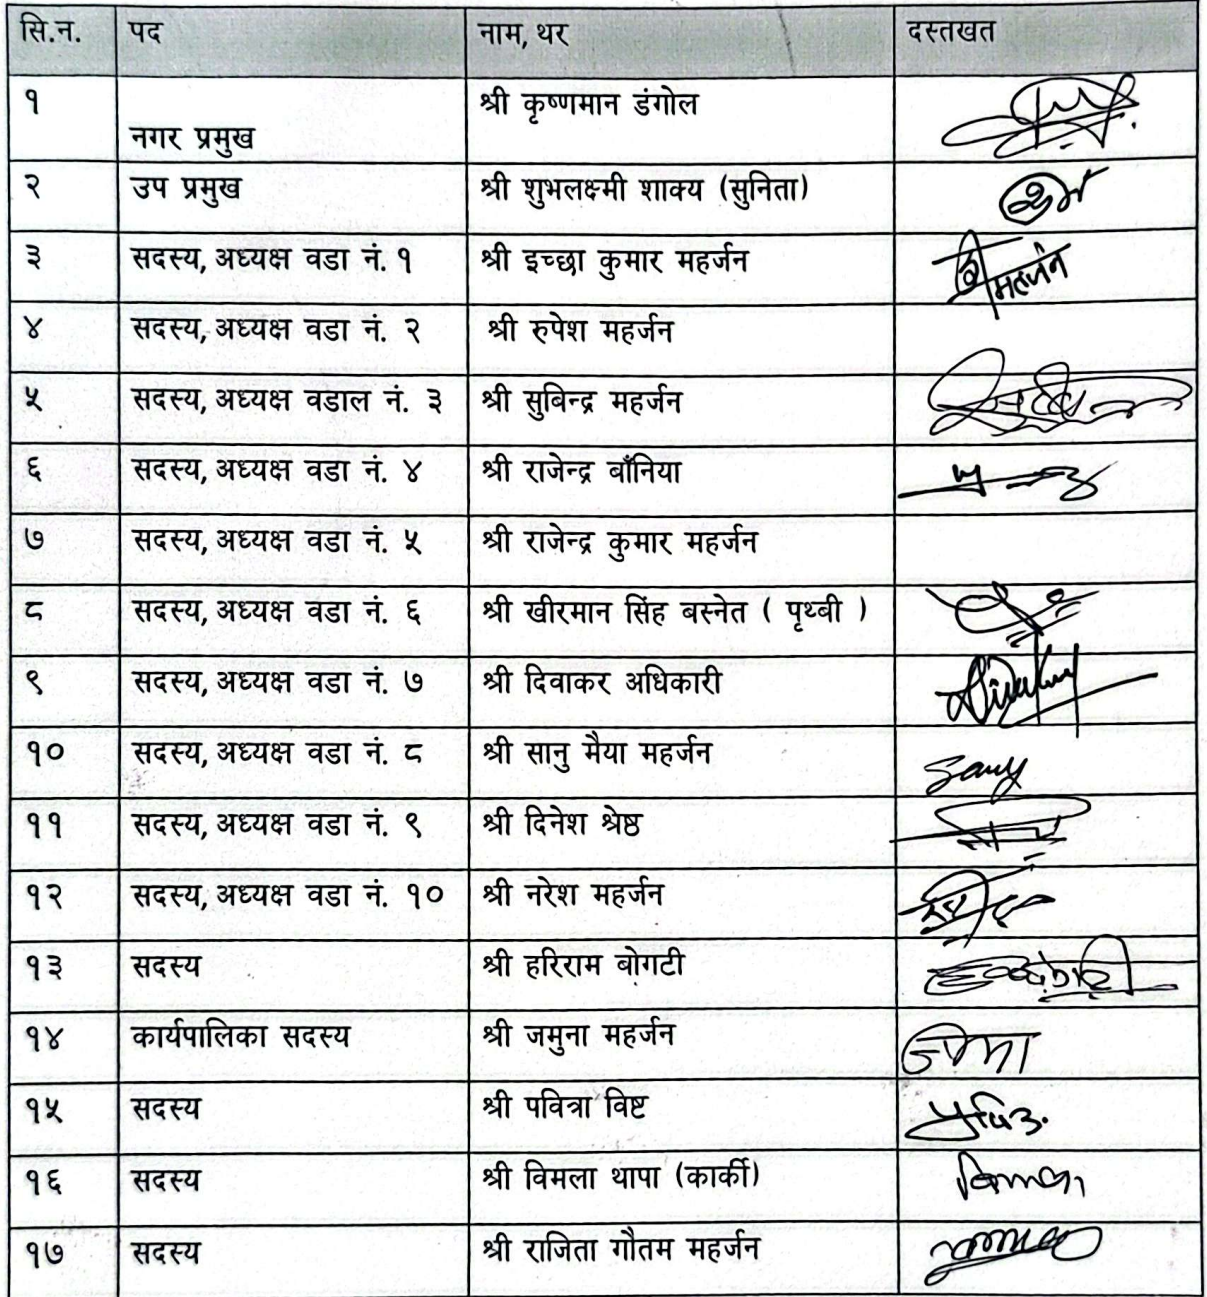 सि.न. पद नाम, थर दस्तखत
१ नगर प्रमुख श्री कृष्णमान डंगोल
२ उप प्रमुख श्री शुभलक्ष्मी शाक्य (सुनिता)
३ सदस्य, अध्यक्ष वडा नं. १ श्री इच्छा कुमार महर्जन महर्जन
४ सदस्य, अध्यक्ष वडा नं. २ श्री रुपेश महर्जन
५ सदस्य, अध्यक्ष वडाल नं. ३ श्री सुबिन्द्र महर्जन
६ सदस्य, अध्यक्ष वडा नं. ४ श्री राजेन्द्र बाँनिया
७ सदस्य, अध्यक्ष वडा नं. ५ श्री राजेन्द्र कुमार महर्जन
८ सदस्य, अध्यक्ष वडा नं. ६ श्री खीरमान सिंह बस्नेत ( पृथ्बी )
९ सदस्य, अध्यक्ष वडा नं. ७ श्री दिवाकर अधिकारी
१० सदस्य, अध्यक्ष वडा नं. ८ श्री सानु मैया महर्जन
११ सदस्य, अध्यक्ष वडा नं. ९ श्री दिनेश श्रेष्ठ
१२ सदस्य, अध्यक्ष वडा नं. १० श्री नरेश महर्जन
१३ सदस्य श्री हरिराम बोगटी
१४ कार्यपालिका सदस्य श्री जमुना महर्जन
१५ सदस्य श्री पवित्रा विष्ट
१६ सदस्य श्री विमला थापा (कार्की) विमला
१७ सदस्य श्री राजिता गौतम महर्जन